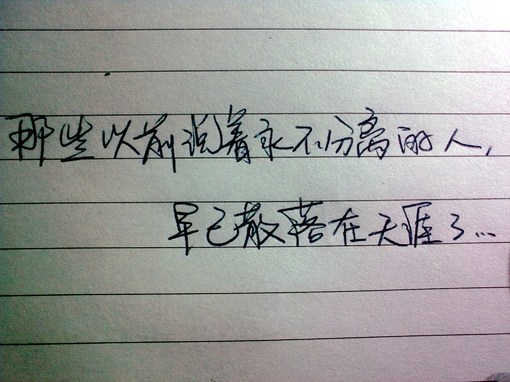 那些以前说着永不分离的人，
早已散落在天涯了...